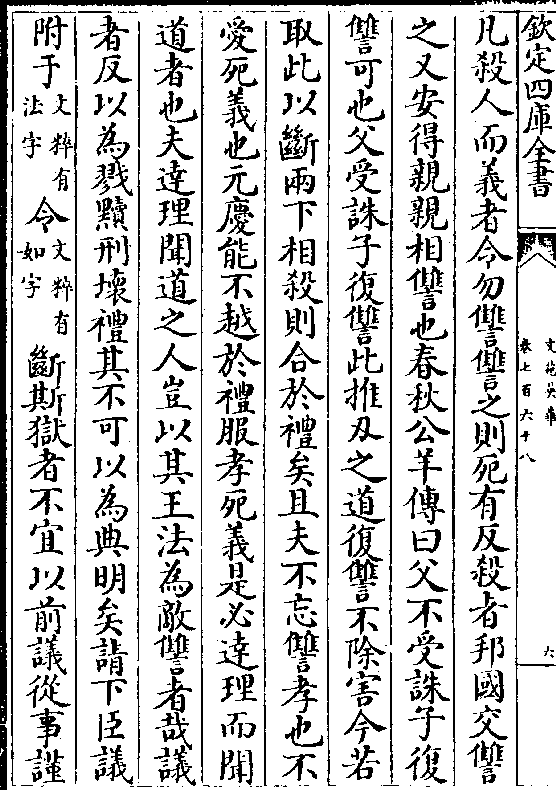 欽定四庫全書
文苑英華
卷七百六十八
六
凡殺人而義者令勿讐讐之則死有反殺者邦國交讐
之又安得親親相讐也春秋公羊傳曰父不受誅子復
讐可也父受誅子復讐此推刄之道復讐不除害今若
取此以斷兩下相殺則合於禮矣且夫不忘讐孝也不
愛死義也元慶能不越於禮服孝死義是必達理而聞
道者也夫達理聞道之人豈以其王法為敵讐者哉議
者反以為戮黷刑壞禮其不可以為典明矣請下臣議
附于文粹有法字令文粹有如字斷斯獄者不宜以前議從事謹